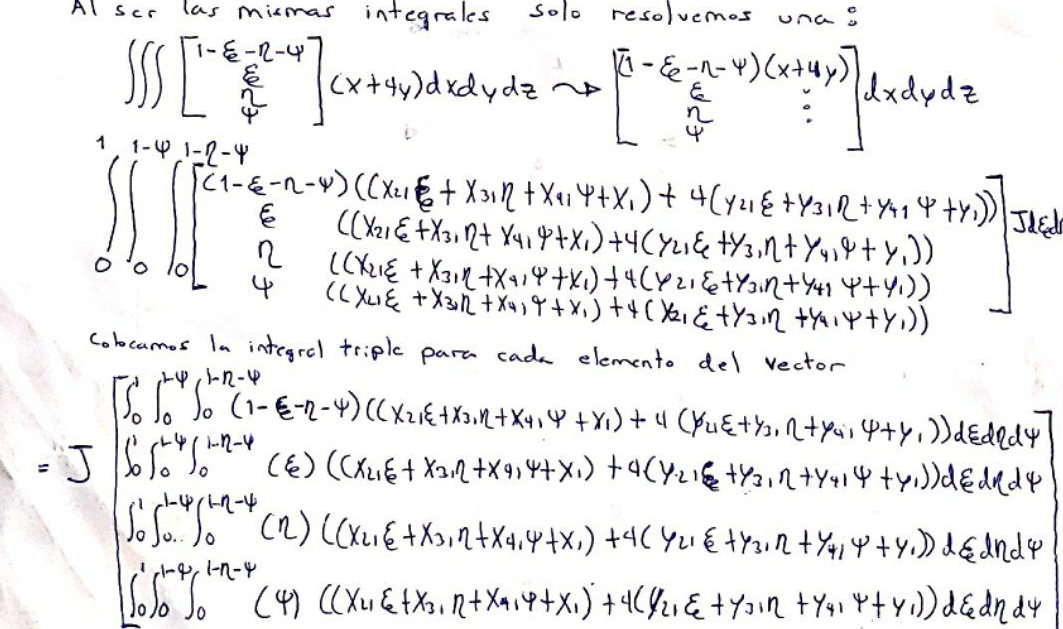 Al ser las mismas integrales solo resolvemos una:
∭ [1-ξ-η-ψ ξ η ψ] (x+4y)dxdydz ⇝ [(1-ξ-η-ψ)(x+4y) ξ η ψ ⋮] dxdydz
∫₀¹ ∫₀^{1-ψ} ∫₀^{1-η-ψ} [(1-ξ-η-ψ)((X₂₁ξ+X₃₁η+X₄₁ψ+X₁)+4(y₂₁ξ+y₃₁η+y₄₁ψ+y₁))
ξ ((X₂₁ξ+X₃₁η+X₄₁ψ+X₁)+4(y₂₁ξ+y₃₁η+y₄₁ψ+y₁))
η ((X₂₁ξ+X₃₁η+X₄₁ψ+X₁)+4(y₂₁ξ+y₃₁η+y₄₁ψ+y₁))
ψ ((X₂₁ξ+X₃₁η+X₄₁ψ+X₁)+4(y₂₁ξ+y₃₁η+y₄₁ψ+y₁))] Jdξd
Colocamos la integral triple para cada elemento del vector
= J [∫₀¹ ∫₀^{1-ψ} ∫₀^{1-η-ψ} (1-ξ-η-ψ)((X₂₁ξ+X₃₁η+X₄₁ψ+X₁)+4(y₂₁ξ+y₃₁η+y₄₁ψ+y₁))dξdηdψ
∫₀¹ ∫₀^{1-ψ} ∫₀^{1-η-ψ} (ξ)((X₂₁ξ+X₃₁η+X₄₁ψ+X₁)+4(y₂₁ξ+y₃₁η+y₄₁ψ+y₁))dξdηdψ
∫₀¹ ∫₀^{1-ψ} ∫₀^{1-η-ψ} (η)((X₂₁ξ+X₃₁η+X₄₁ψ+X₁)+4(y₂₁ξ+y₃₁η+y₄₁ψ+y₁))dξdηdψ
∫₀¹ ∫₀^{1-ψ} ∫₀^{1-η-ψ} (ψ)((X₂₁ξ+X₃₁η+X₄₁ψ+X₁)+4(y₂₁ξ+y₃₁η+y₄₁ψ+y₁))dξdηdψ]